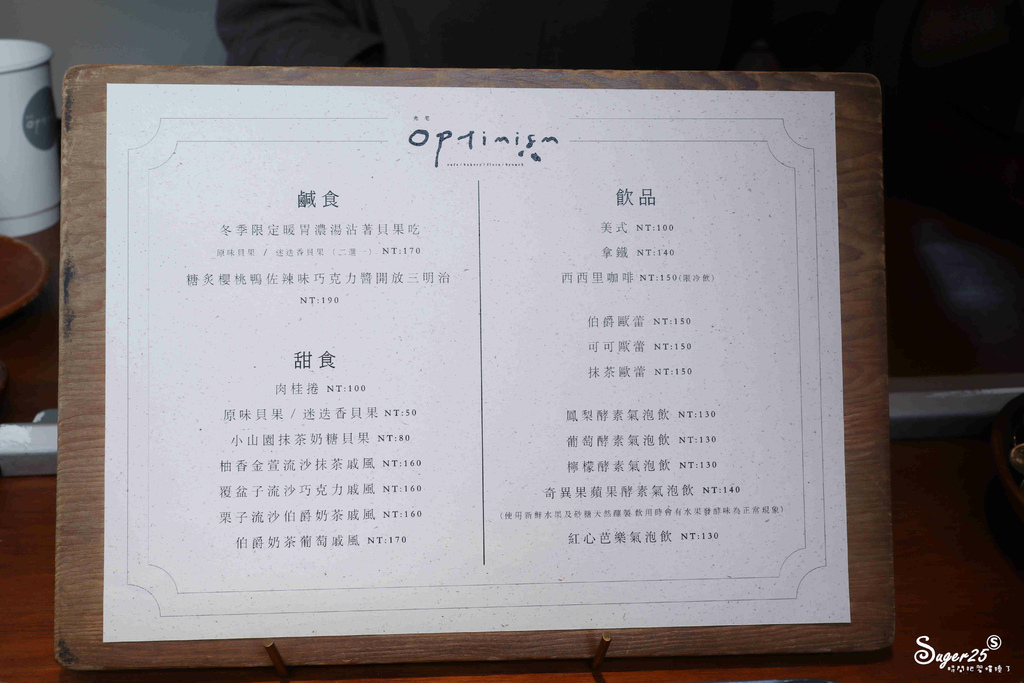 optimism
cafe / bakery / store / brunch
鹹食
冬季限定暖胃濃湯沾著貝果吃
原味貝果 / 迷迭香貝果 (二選一) NT:170
糖炙櫻桃鴨佐辣味巧克力醬開放三明治
NT:190
甜食
肉桂捲 NT:100
原味貝果 / 迷迭香貝果 NT:50
小山園抹茶奶糖貝果 NT:80
柚香金萱流沙抹茶戚風 NT:160
覆盆子流沙巧克力戚風 NT:160
栗子流沙伯爵奶茶戚風 NT:160
伯爵奶茶葡萄戚風 NT:170
飲品
美式 NT:100
拿鐵 NT:140
西西里咖啡 NT:150(限冷飲)
伯爵歐蕾 NT:150
可可歐蕾 NT:150
抹茶歐蕾 NT:150
鳳梨酵素氣泡飲 NT:130
葡萄酵素氣泡飲 NT:130
檸檬酵素氣泡飲 NT:130
奇異果蘋果酵素氣泡飲 NT:140
(使用新鮮水果及砂糖天然釀製 飲用時會有水果發酵味為正常現象)
紅心芭樂氣泡飲 NT:130
Suger25 S